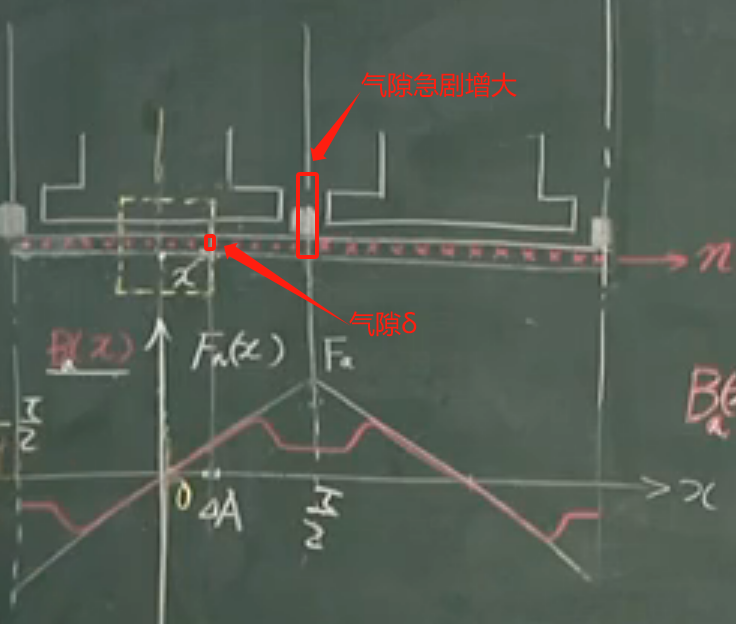 气隙急剧增大
n
x
气隙δ
Bₐ(x)
Fₐ(x)
Fₐ
τ/2
0
ΔA
τ/2
x